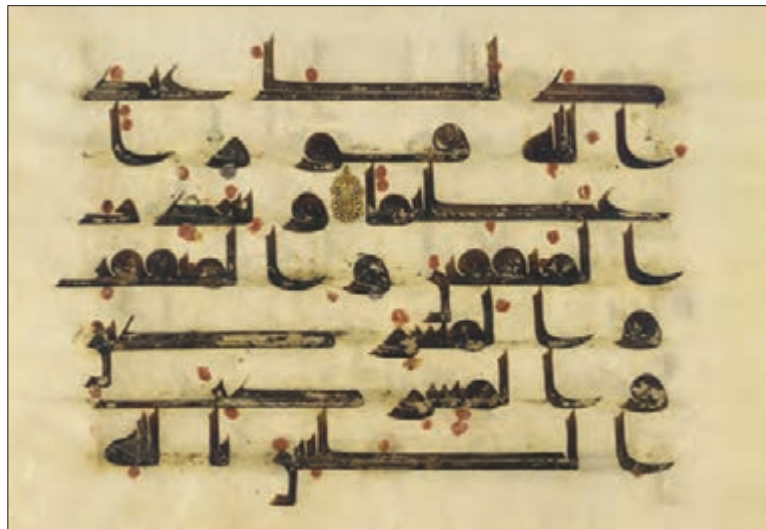 ذلك عند
الله فوزا
عظيما ويعذب
المنفقين والمنفقت
والمشركين
والمشركت
الظانين بالله